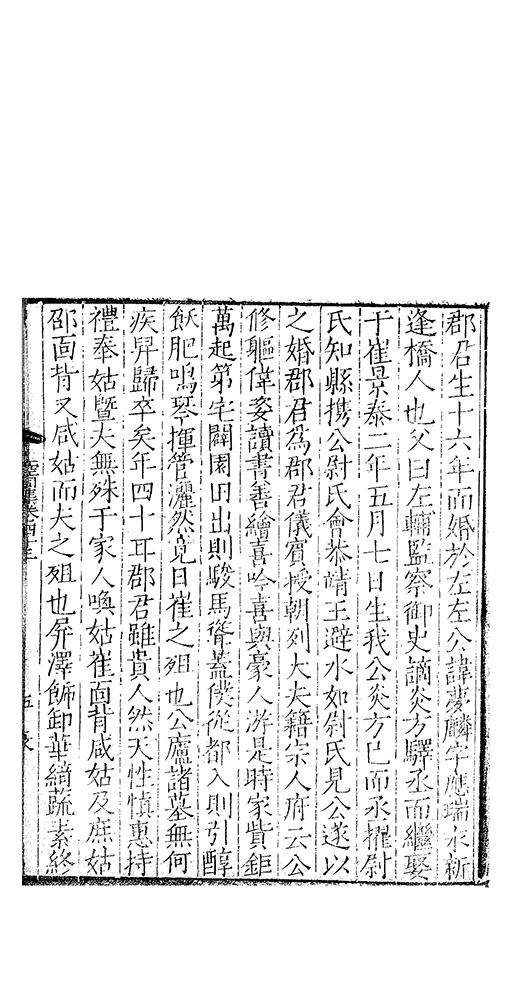 郡君生十六年而婚於左左公諱夢麟字應瑞永新
逢橋人也父曰左輔監察御史謫炎方驛丞而繼娶
于崔景泰二年五月七日生我公炎方已而丞擢尉
氏知縣携公尉氏會恭靖王避水如尉氏見公遂以
之婚郡君為郡君儀賓授朝列大夫籍宗人府云公
修軀偉姿讀書善繪喜吟喜與豪人游是時家貲鉅
萬起第宅闢園囿出則駿馬聳蓋僕從都入則引醇
飫肥鳴琴揮管灑然竟日崔之殂也公廬諸墓無何
疾舁歸卒矣年四十耳郡君雖貴人然天性慎惠持
禮奉姑暨夫無殊于家人喚姑崔面背咸姑及庶姑
邵面背又咸姑而夫之殂也屏澤飾卸華綺蔬素終
空同集卷四十三
五